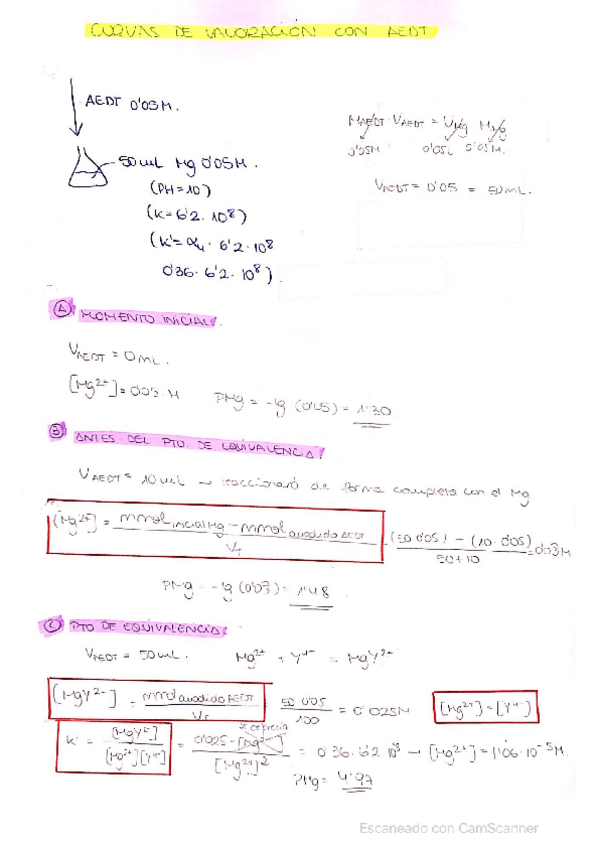 CURVAS DE VALORACIÓN CON AEDT
AEDT 0'05M.
50mL Mg 0'05M.
(PH=10)
(K=6'2·10⁸)
(K'=α₄·6'2·10⁸
0'36·6'2·10⁸).
M AEDT · V AEDT = V Mg M Mg
0'05M 0'05L 0'05M.
V AEDT = 0'05 = 50mL.
A MOMENTO INICIAL.
V AEDT = 0mL.
[Mg²⁺]=0'05M PMg = -lg (0'05) = 1'30
B ANTES DEL PTO. DE EQUIVALENCIA
V AEDT = 10mL → reaccionará de forma completa con el Mg
[Mg²⁺] = mmol inicial Mg - mmol añadido AEDT / V_T = (50·0'05) - (10·0'05) / 50+10 = 0'03M
PMg = -lg (0'03) = 1'48
C PTO DE EQUIVALENCIA
V AEDT = 50mL. Mg²⁺ + Y⁴⁻ = MgY²⁻
[MgY²⁻] = mmol añadido AEDT / V_T = 50·0'05 / 100 = 0'025M [Mg²⁺]=[Y⁴⁻]
se desprecia
K' = [MgY²⁻] / [Mg²⁺][Y⁴⁻] = 0'025-[Mg²⁺] / [Mg²⁺]² = 0'36·6'2·10⁸ → [Mg²⁺]=1'06·10⁻⁵M.
PMg = 4'97
Escaneado con CamScanner